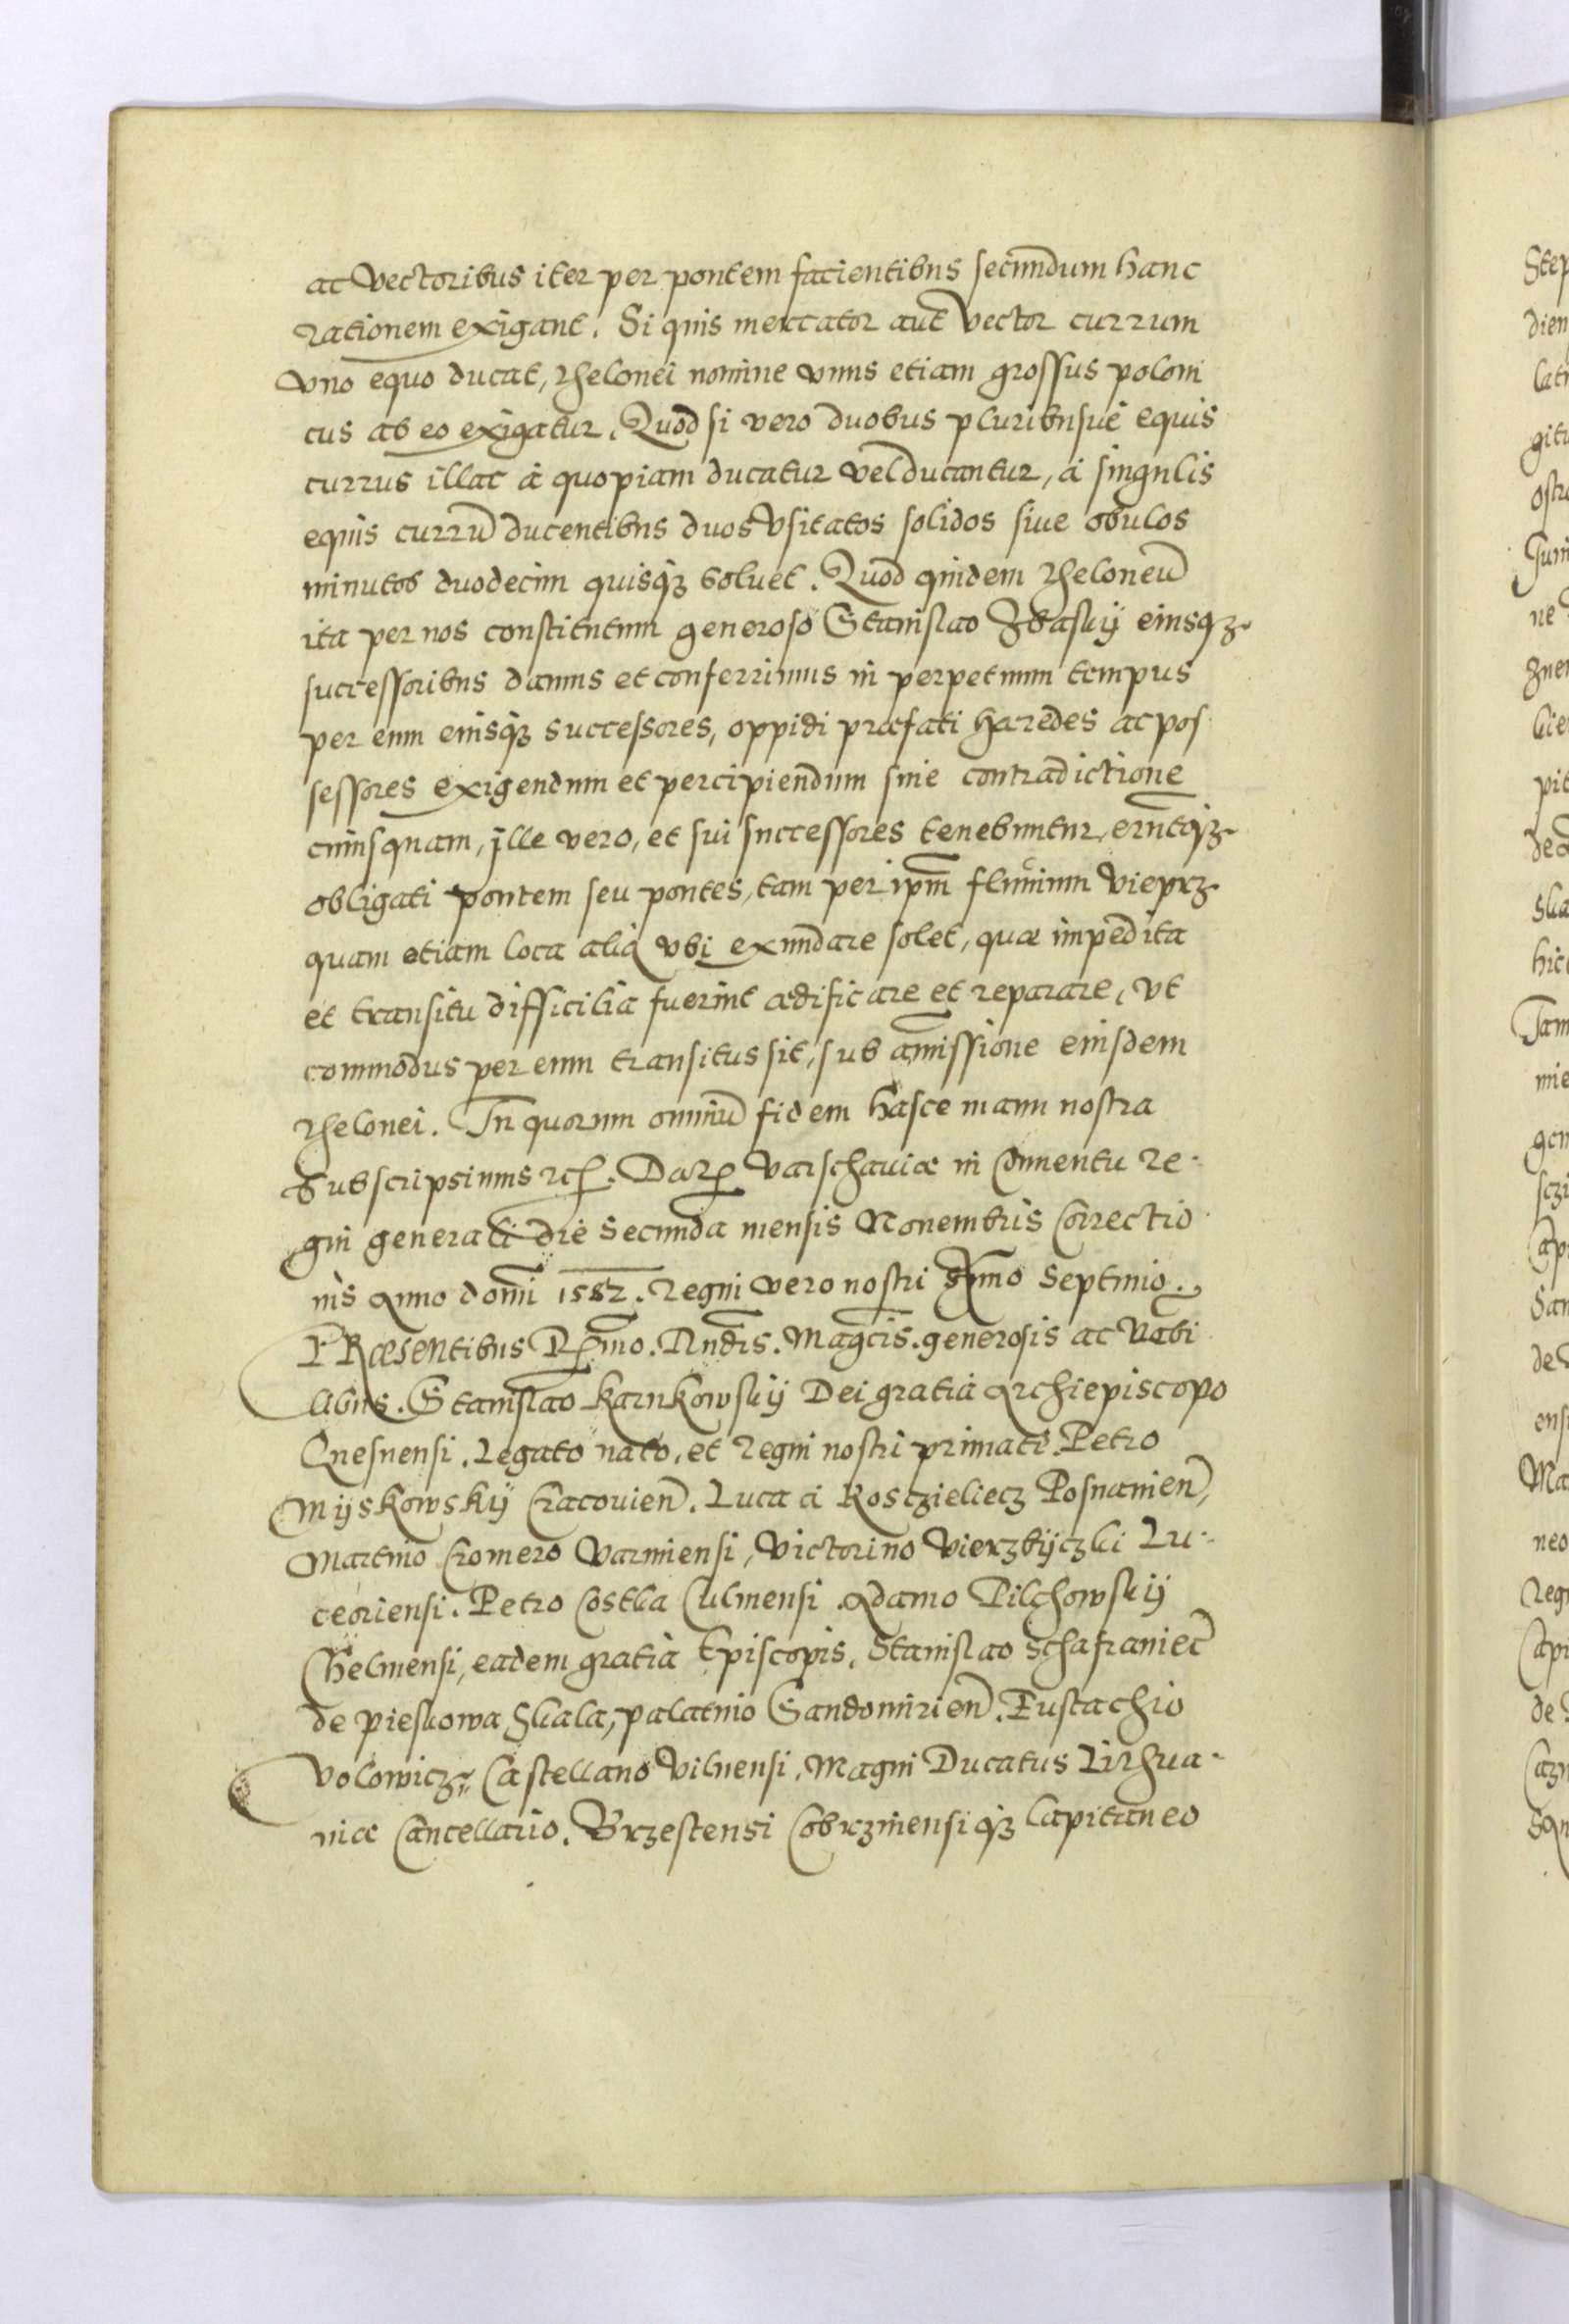 ac vectoribus iter per pontem facientibus secundum hanc
rationem exigant. Si quis mercator aut vector currum
vno equo ducat, thelonei nomine vnus etiam grossus poloni
cus ab eo exigatur. Quod si vero duobus pluribusue equis
currus illac à quopiam ducatur vel ducantur, à singulis
equis currũ ducentibus duos vsitatos solidos siue obulos
minutos duodecim quisqz soluet. Quod quidem theloneũ
ita per nos constitutum generoso Stanislao Zbaskÿ eiusqz
successoribus damus et conferrimus in perpetuum tempus
per eum eiusqz successores, oppidi præfati hæredes ac pos
sessores exigendum et percipiendum sine contradictione
cuiusquam, ille vero, et sui successores tenebuntur, eruntqz
obligati pontem seu pontes, tam per ipm̃ fluuium Vieprz
quam etiam loca alia vbi exundare solet, quæ impedita
et transitu difficilia fuerint ædificare et reparare, vt
commodus per eum transitus sit, sub amissione eiusdem
thelonei. In quorum omniũ fidem hasce manu nostra
subscripsimus etc. Dat Varschauiæ in Conuentu re
gni generali die secunda mensis Nouembris Correctio
nis Anno domi 1582. Regni vero nostri Anno septimo.
PRæsentibus Rmo. Rndis. Magcis. generosis ac Nobi
libus. Stanislao Karnkowskÿ Dei gratia Archiepiscopo
Gnesnensi. Legato nato, et regni nostri primate. Petro
Mÿskowskÿ Cracouien. Luca à Kosczieliecz Posnanien,
Martino Cromero Varmiensi, Victorino Vierzbÿczki Lu
ceoriensi. Petro Costka Culmensi. Adamo Pilchowskÿ
Chelmensi, eadem gratia Episcopis. Stanislao Schafraniec
de pieskowa Skala, palatino Sandomirien. Eustachio
Volowicz, Castellano Vilnensi. Magni Ducatus Lithua
niæ Cancellario. Brzestensi Cobrzinensiqz Capitaneo